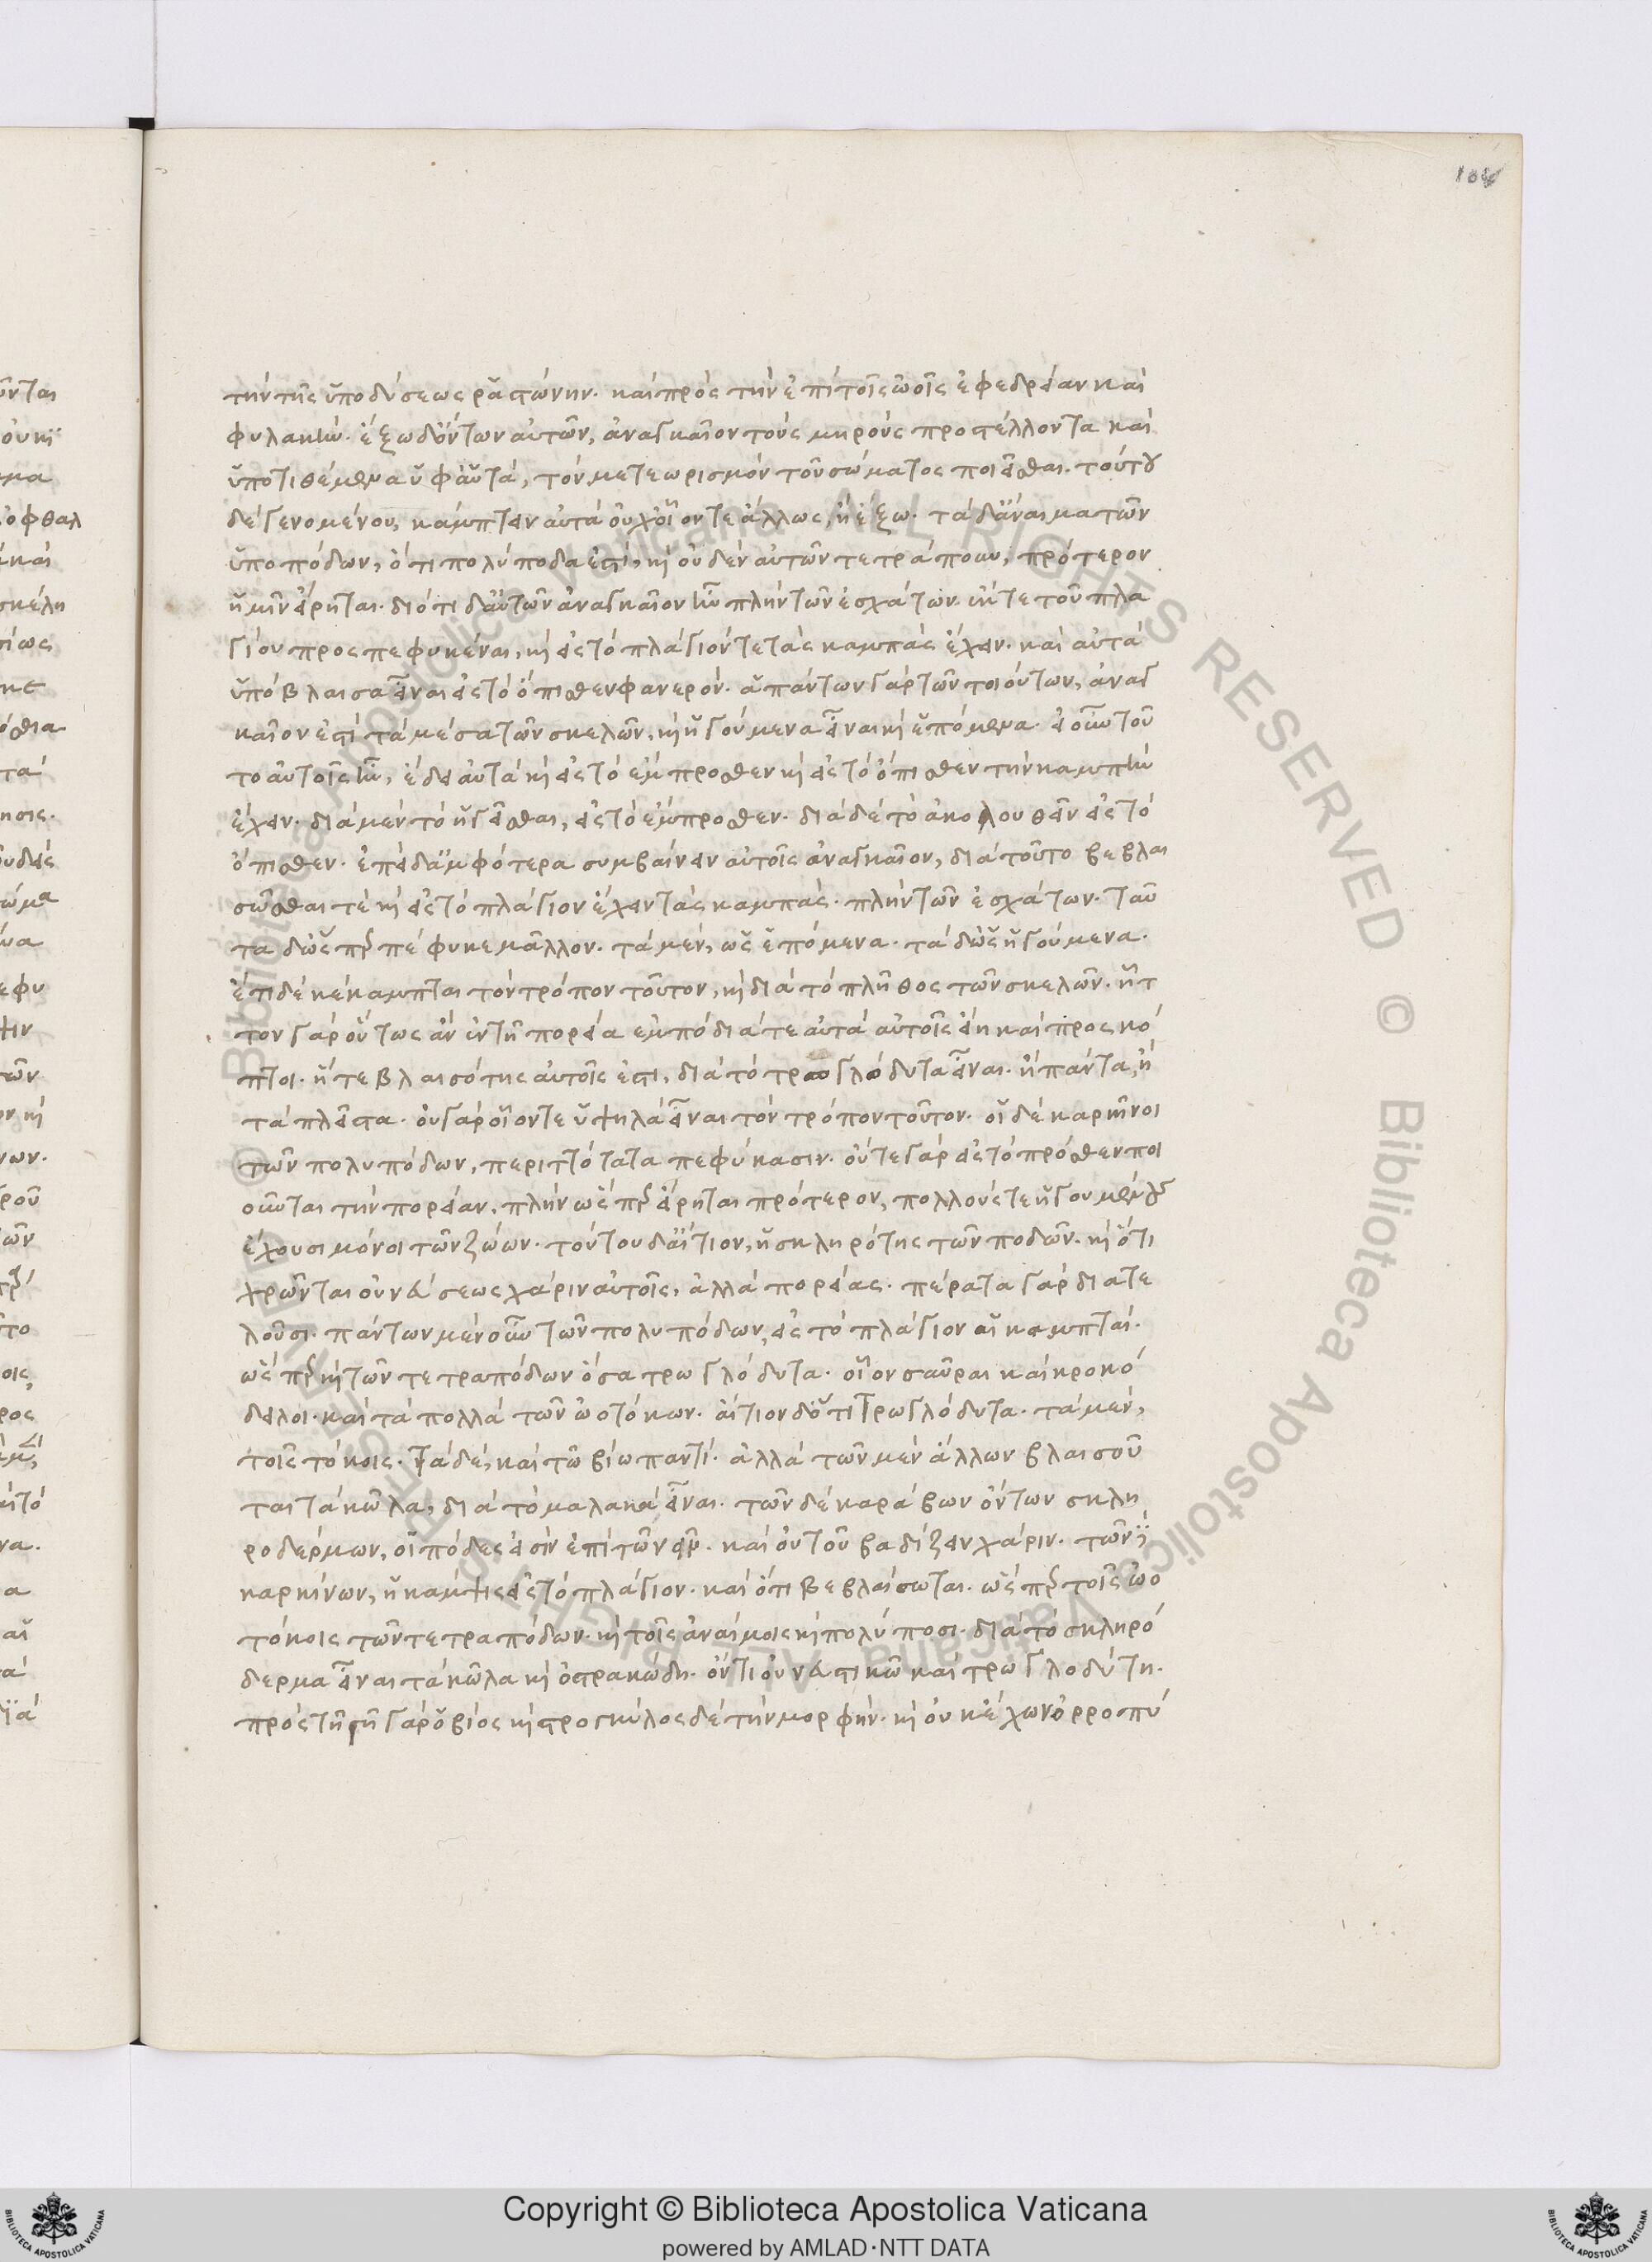 104
τὴν τῆς ὑποδύσεως ῥαστώνην. καὶ πρὸς τὴν ἐπὶ τοῖς ὠοῖς ἐφεδρείαν καὶ
φυλακὴν. ἔξω δ' ὄντων αὐτῶν, ἀναγκαῖον τοὺς μηροὺς προστέλλοντα καὶ
ὑποτιθέμενα ὑφ' αὑτὰ, τὸν μετεωρισμὸν τοῦ σώματος ποιεῖσθαι. τούτου
δὲ γενομένου, κάμπτειν αὐτὰ οὐχ οἷόν τε ἄλλως, ἢ ἔξω. τὰ δ' ἄναιμα τῶν
ὑποπόδων, ὅτι πολύποδα ἐστὶ, καὶ οὐδὲν αὐτῶν τετράπουν, πρότερον
ἡμῖν εἴρηται. διότι δ' αὐτῶν ἀναγκαῖον ἦν πλὴν τῶν ἐσχάτων ἔκ τε τοῦ πλα
γίου προσπεφυκέναι, καὶ εἰς τὸ πλάγιόν τε τὰς καμπὰς ἔχειν. καὶ αὐτὰ
ὑπόβλαισα εἶναι εἰς τὸ ὄπισθεν φανερόν. ἁπάντων γὰρ τῶν τοιούτων, ἀναγ
καῖον ἐστὶ τὰ μέσα τῶν σκελῶν, καὶ ἡγούμενα εἶναι καὶ ἑπόμενα. εἰ οὖν τοῦ
το αὐτοῖς ἦν, ἔδει αὐτὰ καὶ εἰς τὸ ἔμπροσθεν καὶ εἰς τὸ ὄπισθεν τὴν καμπὴν
ἔχειν. διὰ μὲν τὸ ἡγεῖσθαι, εἰς τὸ ἔμπροσθεν. διὰ δὲ τὸ ἀκολουθεῖν εἰς τὸ
ὄπισθεν. ἐπεὶ δ' ἀμφότερα συμβαίνειν αὐτοῖς ἀναγκαῖον, διὰ τοῦτο βεβλαι
σῶσθαι τὲ καὶ εἰς τὸ πλάγιον ἔχειν τὰς καμπάς. πλὴν τῶν ἐσχάτων. ταῦ
τα δ' ὥσπερ πέφυκε μᾶλλον. τὰ μὲν, ὡς ἑπόμενα. τὰ δ' ὡς ἡγούμενα.
ἔτι δὲ κέκαμπται τὸν τρόπον τοῦτον, καὶ διὰ τὸ πλῆθος τῶν σκελῶν. ἧτ
τον γὰρ οὕτως ἂν ἐν τῇ πορεία ἐμπόδιά τε αὐτὰ αὑτοῖς εἴη καὶ προσκό
πτοι. ἥ τε βλαισότης αὐτοῖς ἐστι, διὰ τὸ τρωγλόδυτα εἶναι. ἢ πάντα, ἢ
τὰ πλεῖστα. οὐ γὰρ οἷόν τε ὑψηλὰ εἶναι τὸν τρόπον τοῦτον. οἱ δὲ καρκῖνοι
τῶν πολυπόδων, περιττότατα πεφύκασιν. οὔτε γὰρ εἰς τὸ πρόσθεν ποι
οῦνται τὴν πορείαν. πλὴν ὥσπερ εἴρηται πρότερον, πολλούς τε ἡγουμένους
ἔχουσι μόνοι τῶν ζώων. τούτου δ' αἴτιον, ἡ σκληρότης τῶν ποδῶν. καὶ ὅτι
χρῶνται οὐ νεύσεως χάριν αὐτοῖς, ἀλλὰ πορείας. πέρατα γὰρ διατε
λοῦσι. πάντων μὲν οὖν τῶν πολυπόδων, εἰς τὸ πλάγιον αἱ καμπταί.
ὥσπερ καὶ τῶν τετραπόδων ὅσα τρωγλόδυτα. οἷον σαῦραι καὶ κροκό
δειλοι. καὶ τὰ πολλὰ τῶν ὠοτόκων. αἴτιον δ' ὅτι τρωγλόδυτα. τὰ μὲν,
τοῖς τόκοις. τὰ δὲ, καὶ τῷ βίῳ παντί. ἀλλὰ τῶν μὲν ἄλλων βλαισοῦ
ται τὰ κῶλα, διὰ τὸ μαλακὰ εἶναι. τῶν δὲ καράβων ὄντων σκλη
ροδέρμων, οἱ πόδες εἰσὶν ἐπὶ τῷ νεῖν. καὶ οὐ τοῦ βαδίζειν χάριν. τῶν
καρκίνων, ἡ κάμψις εἰς τὸ πλάγιον. καὶ ὅτι βεβλαίσωται. ὥσπερ τοῖς ὠο
τόκοις τῶν τετραπόδων. καὶ τοῖς ἀναίμοις καὶ πολύποσι. διὰ τὸ σκληρό
δερμα εἶναι τὰ κῶλα καὶ ὀστρακώδη. ὄντι οὐ νευστικῷ καὶ τρωγλοδύτῃ.
πρὸς τῇ γῇ γὰρ ὁ βίος καὶ στρογγύλος δὲ τὴν μορφήν. καὶ οὐκ ἔχων ὀρροπύ
Copyright © Biblioteca Apostolica Vaticana
powered by AMLAD·NTT DATA